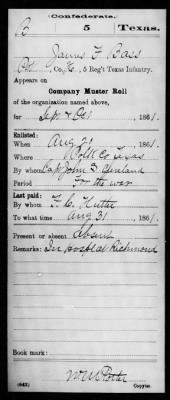 Confederate.
B 5 Texas.
James F Bass
Pvt, Co. E, 5 Reg't Texas Infantry.
Appears on
Company Muster Roll
of the organization named above,
for Sept & Oct, 1861.
Enlisted:
When Aug 21, 1861.
Where Polk Co Texas
By whom Capt John S. Cleveland
Period For the war
Last paid:
By whom
To what time Aug 31, 1861.
Present or absent Absent
Remarks: In hospital at Richmond
Book mark:
(642) Copyist.